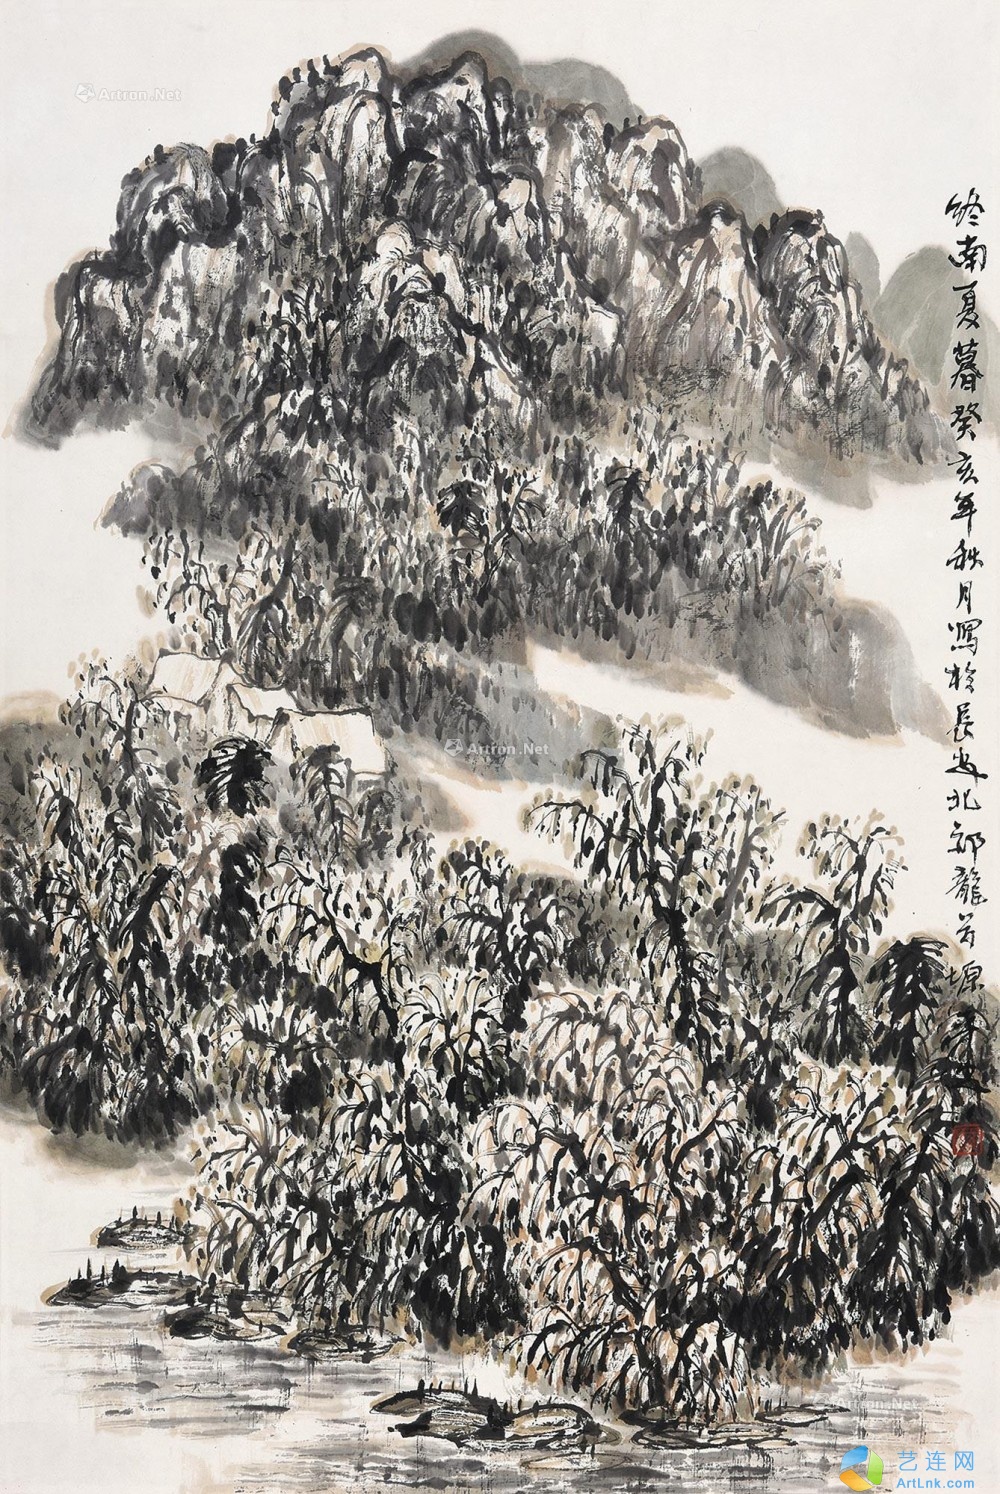 Artron.Net
終南夏暮癸亥年秋月寫於長安北郊龍首塬
Artron.Net
Artron.Net
艺连网
ArtLnk.com